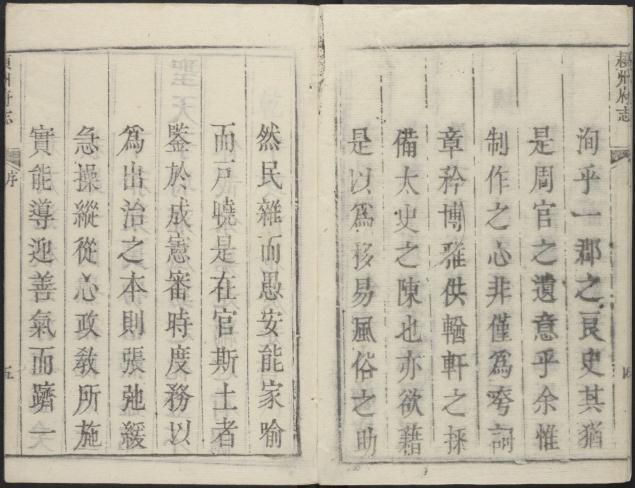 潁州府志
洵乎一郡之良史其猶
是周官之遺意乎余惟
制作之心非僅為夸詞
章矜博雅供輶軒之採
備太史之陳也亦欲藉
是以為移易風俗之助
然民雜而愚安能家喻
而戸曉是在官斯土者
鑒於成憲審時度務以
為出治之本則張弛緩
急操縱從心政敎所施
實能導迎善氣而躋一
潁州府志
序
五